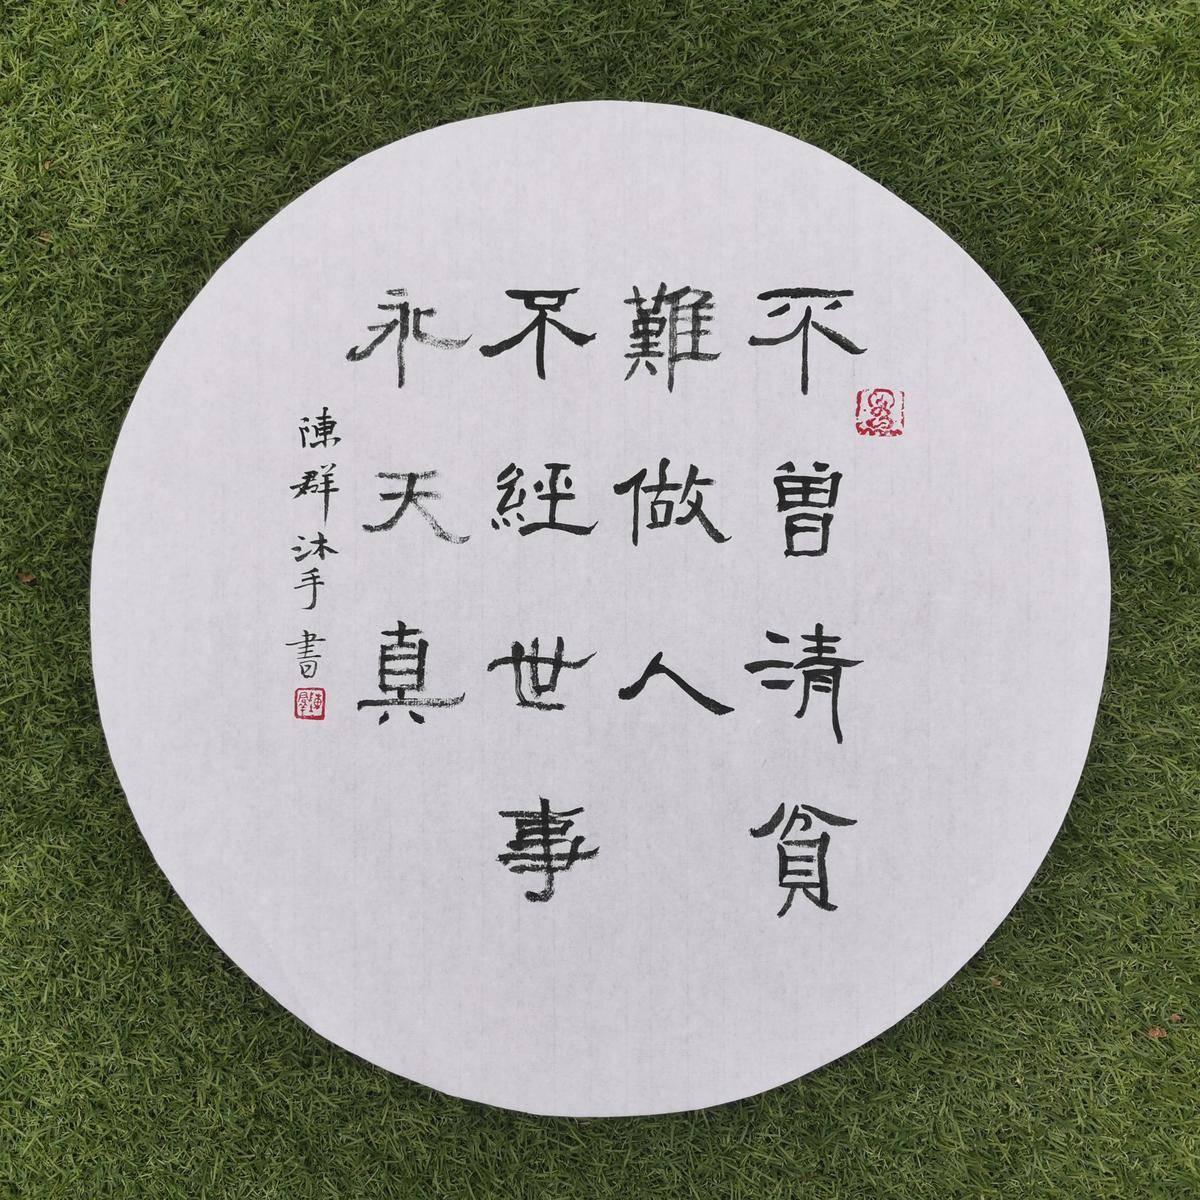 曾清貧
難做人
不經世事
永天真
陳群沐手書
陳群